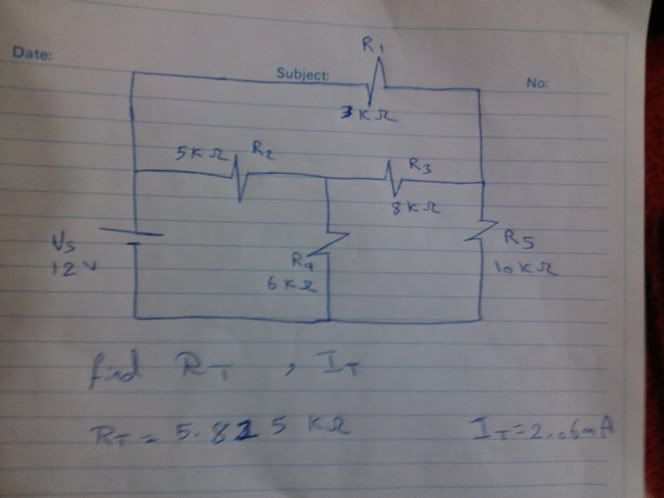 R1
Date:
Subject:
No:
3 KΩ
5K Ω R2
R3
8 KΩ
VS
12 V
R4
6 KΩ
R5
10 KΩ
find RT , IT
RT = 5.825 KΩ IT = 2.06mA